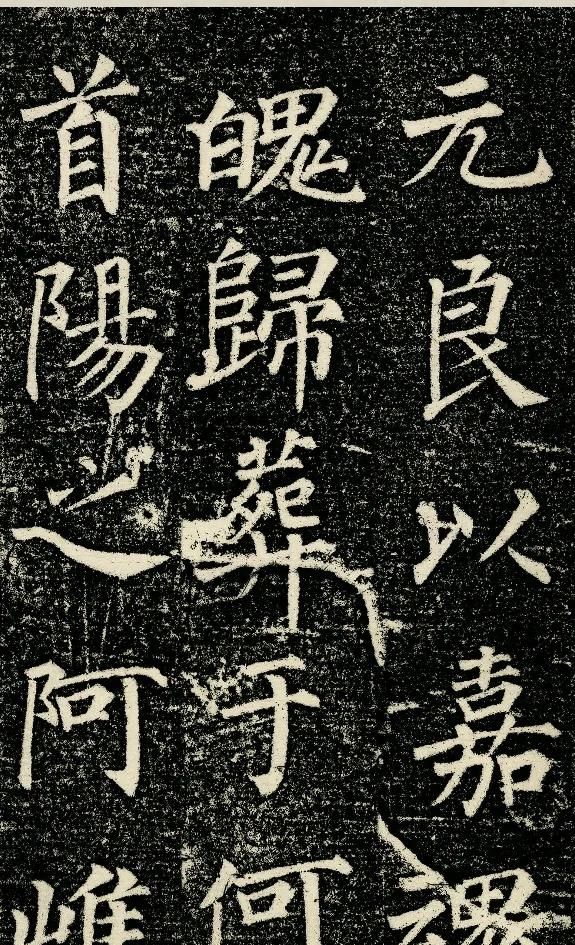 元良以嘉
魄歸葬于何
首陽之阿